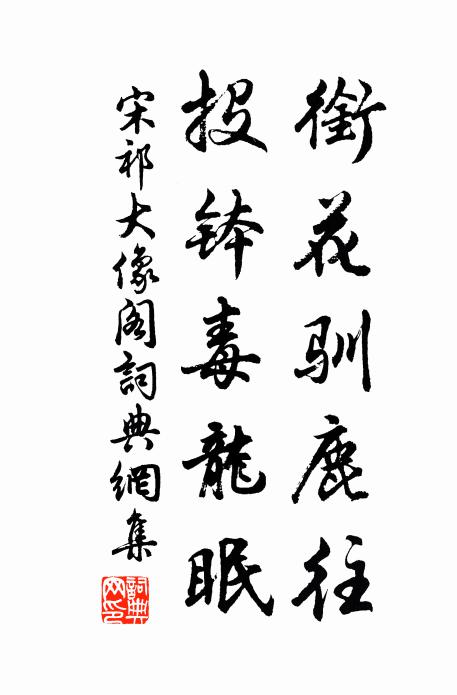 銜花馴鹿往
投鉢毒龍眠
宋祁大像阁詞典網集
詞典
网印